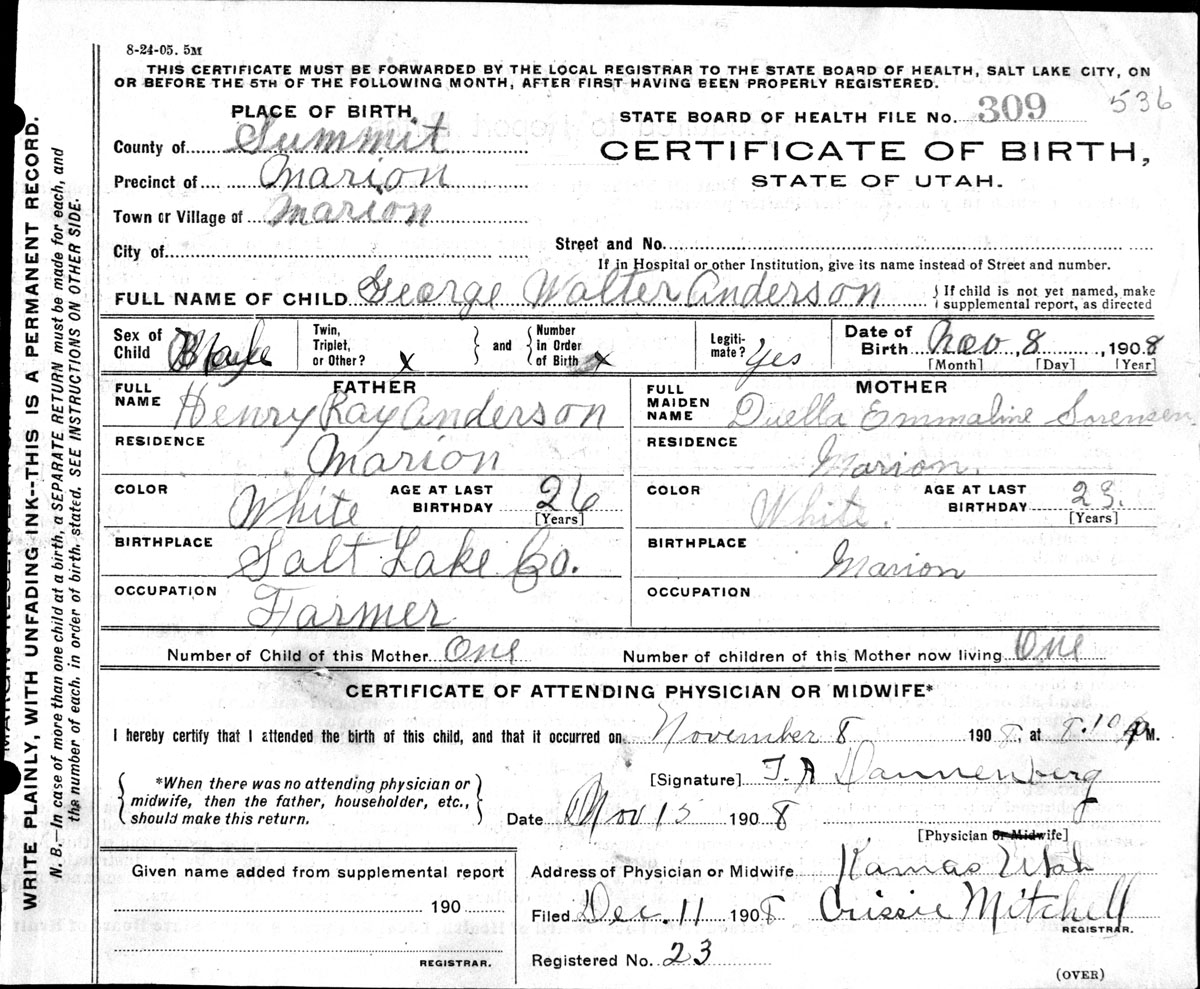 8-24-05. 5M
THIS CERTIFICATE MUST BE FORWARDED BY THE LOCAL REGISTRAR TO THE STATE BOARD OF HEALTH, SALT LAKE CITY, ON
OR BEFORE THE 5TH OF THE FOLLOWING MONTH, AFTER FIRST HAVING BEEN PROPERLY REGISTERED.
WRITE PLAINLY, WITH UNFADING INK--THIS IS A PERMANENT RECORD.
N. B.—In case of more than one child at a birth, a SEPARATE RETURN must be made for each, and
the number of each, in order of birth, stated. SEE INSTRUCTIONS ON OTHER SIDE.
PLACE OF BIRTH
County of Summit
Precinct of Marion
Town or Village of Marion
City of
STATE BOARD OF HEALTH FILE No. 309 536
CERTIFICATE OF BIRTH,
STATE OF UTAH.
Street and No.
If in Hospital or other Institution, give its name instead of Street and number.
FULL NAME OF CHILD George Walter Anderson { If child is not yet named, make
supplemental report, as directed
Sex of Child Male
Twin, Triplet, or Other? x } and { Number in Order of Birth x
Legiti-mate? Yes
Date of Birth Nov, 8, 1908
[Month] [Day] [Year]
FATHER
FULL NAME Henry Ray Anderson
RESIDENCE Marion
COLOR White AGE AT LAST BIRTHDAY 26
[Years]
BIRTHPLACE Salt Lake Co.
OCCUPATION Farmer
MOTHER
FULL MAIDEN NAME Duella Emmaline Sorensen
RESIDENCE Marion.
COLOR White. AGE AT LAST BIRTHDAY 23.
[Years]
BIRTHPLACE Marion
OCCUPATION
Number of Child of this Mother One Number of children of this Mother now living One
CERTIFICATE OF ATTENDING PHYSICIAN OR MIDWIFE*
I hereby certify that I attended the birth of this child, and that it occurred on November 8 1908, at 8.10 P M.
{ *When there was no attending physician or
midwife, then the father, householder, etc.,
should make this return. }
[Signature] T. A Dannenberg
Date Nov 15 1908
[Physician or Midwife]
Given name added from supplemental report
190
REGISTRAR.
Address of Physician or Midwife Kamas Utah
Filed Dec. 11 1908 Crissie Mitchell
REGISTRAR.
Registered No. 23
(OVER)